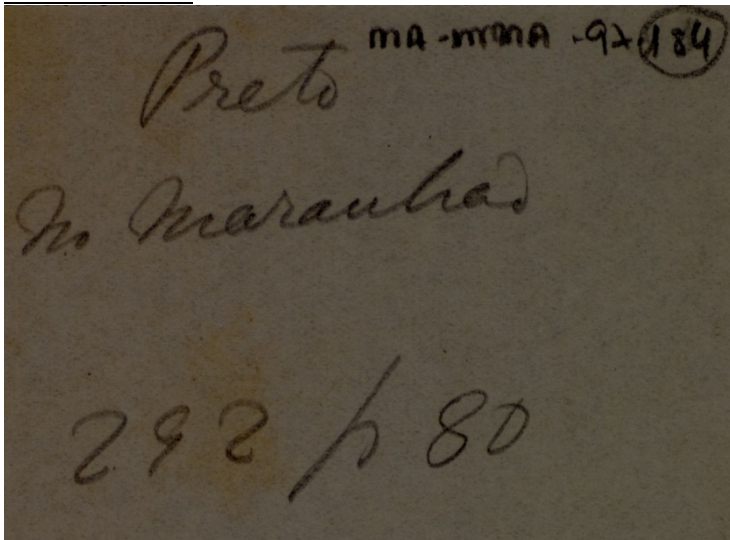 MA-MMA-97-184
Preto
No Maranhão
292 p 80